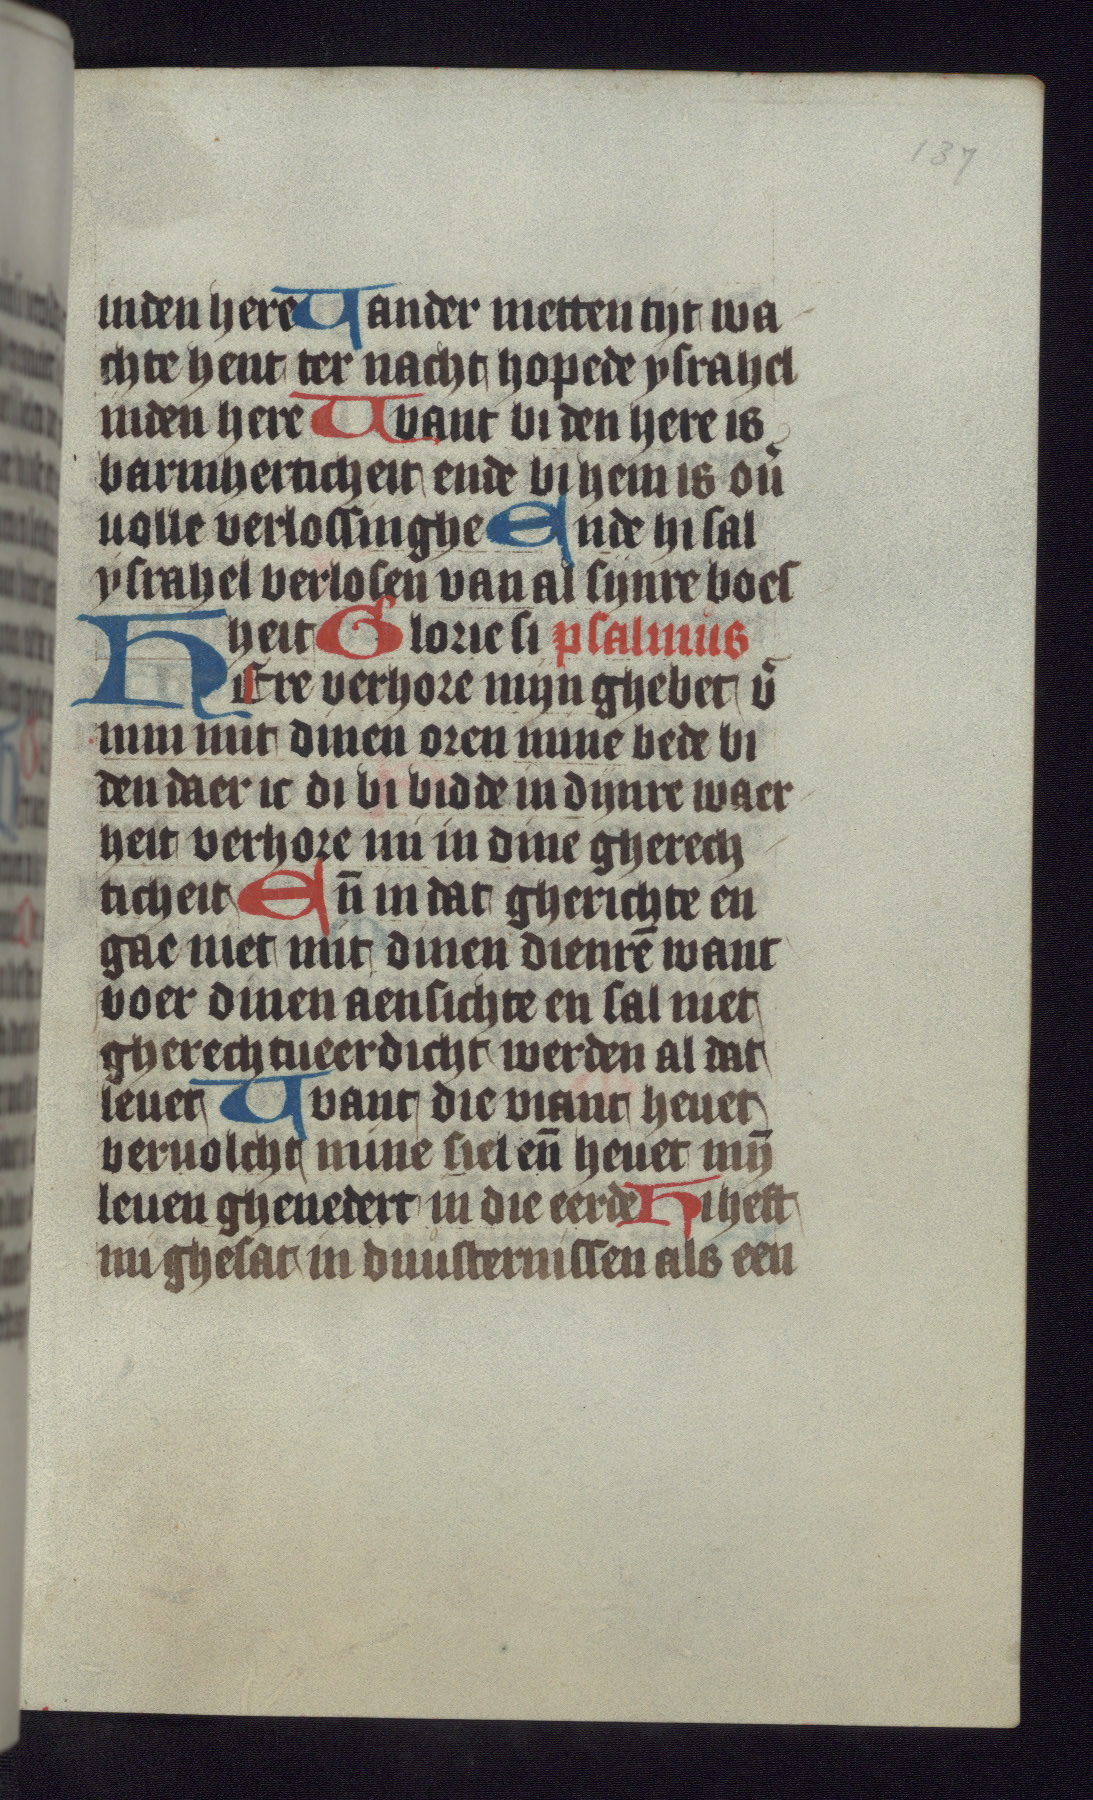 137
inden here Uander metten tijt wa
chte hent ter nacht hopede ysrahel
inden here Uvant bi den here is
barmherticheit ende bi hem is ou̅
uolle verlossinghe Ende hi sal
ysrahel verlosen van al sijnre boes
heit Glorie si psalmus
HEre verhore mijn ghebet v̅
nim mit dinen oren mine bede bi
den daer ic di bi bidde in dijnre waer
heit verhore mi in dine gherech
ticheit En̅ in dat gherichte en
gae niet mit dinen dienre̅ want
voer dinen aensichte en sal niet
gherechtueerdicht werden al dat
leuet Uvant die viant heuet
veruolcht mine siel en̅ heuet my̅
leuen ghenedert in die eerde Hi heft
mi ghesat in duusternissen als een